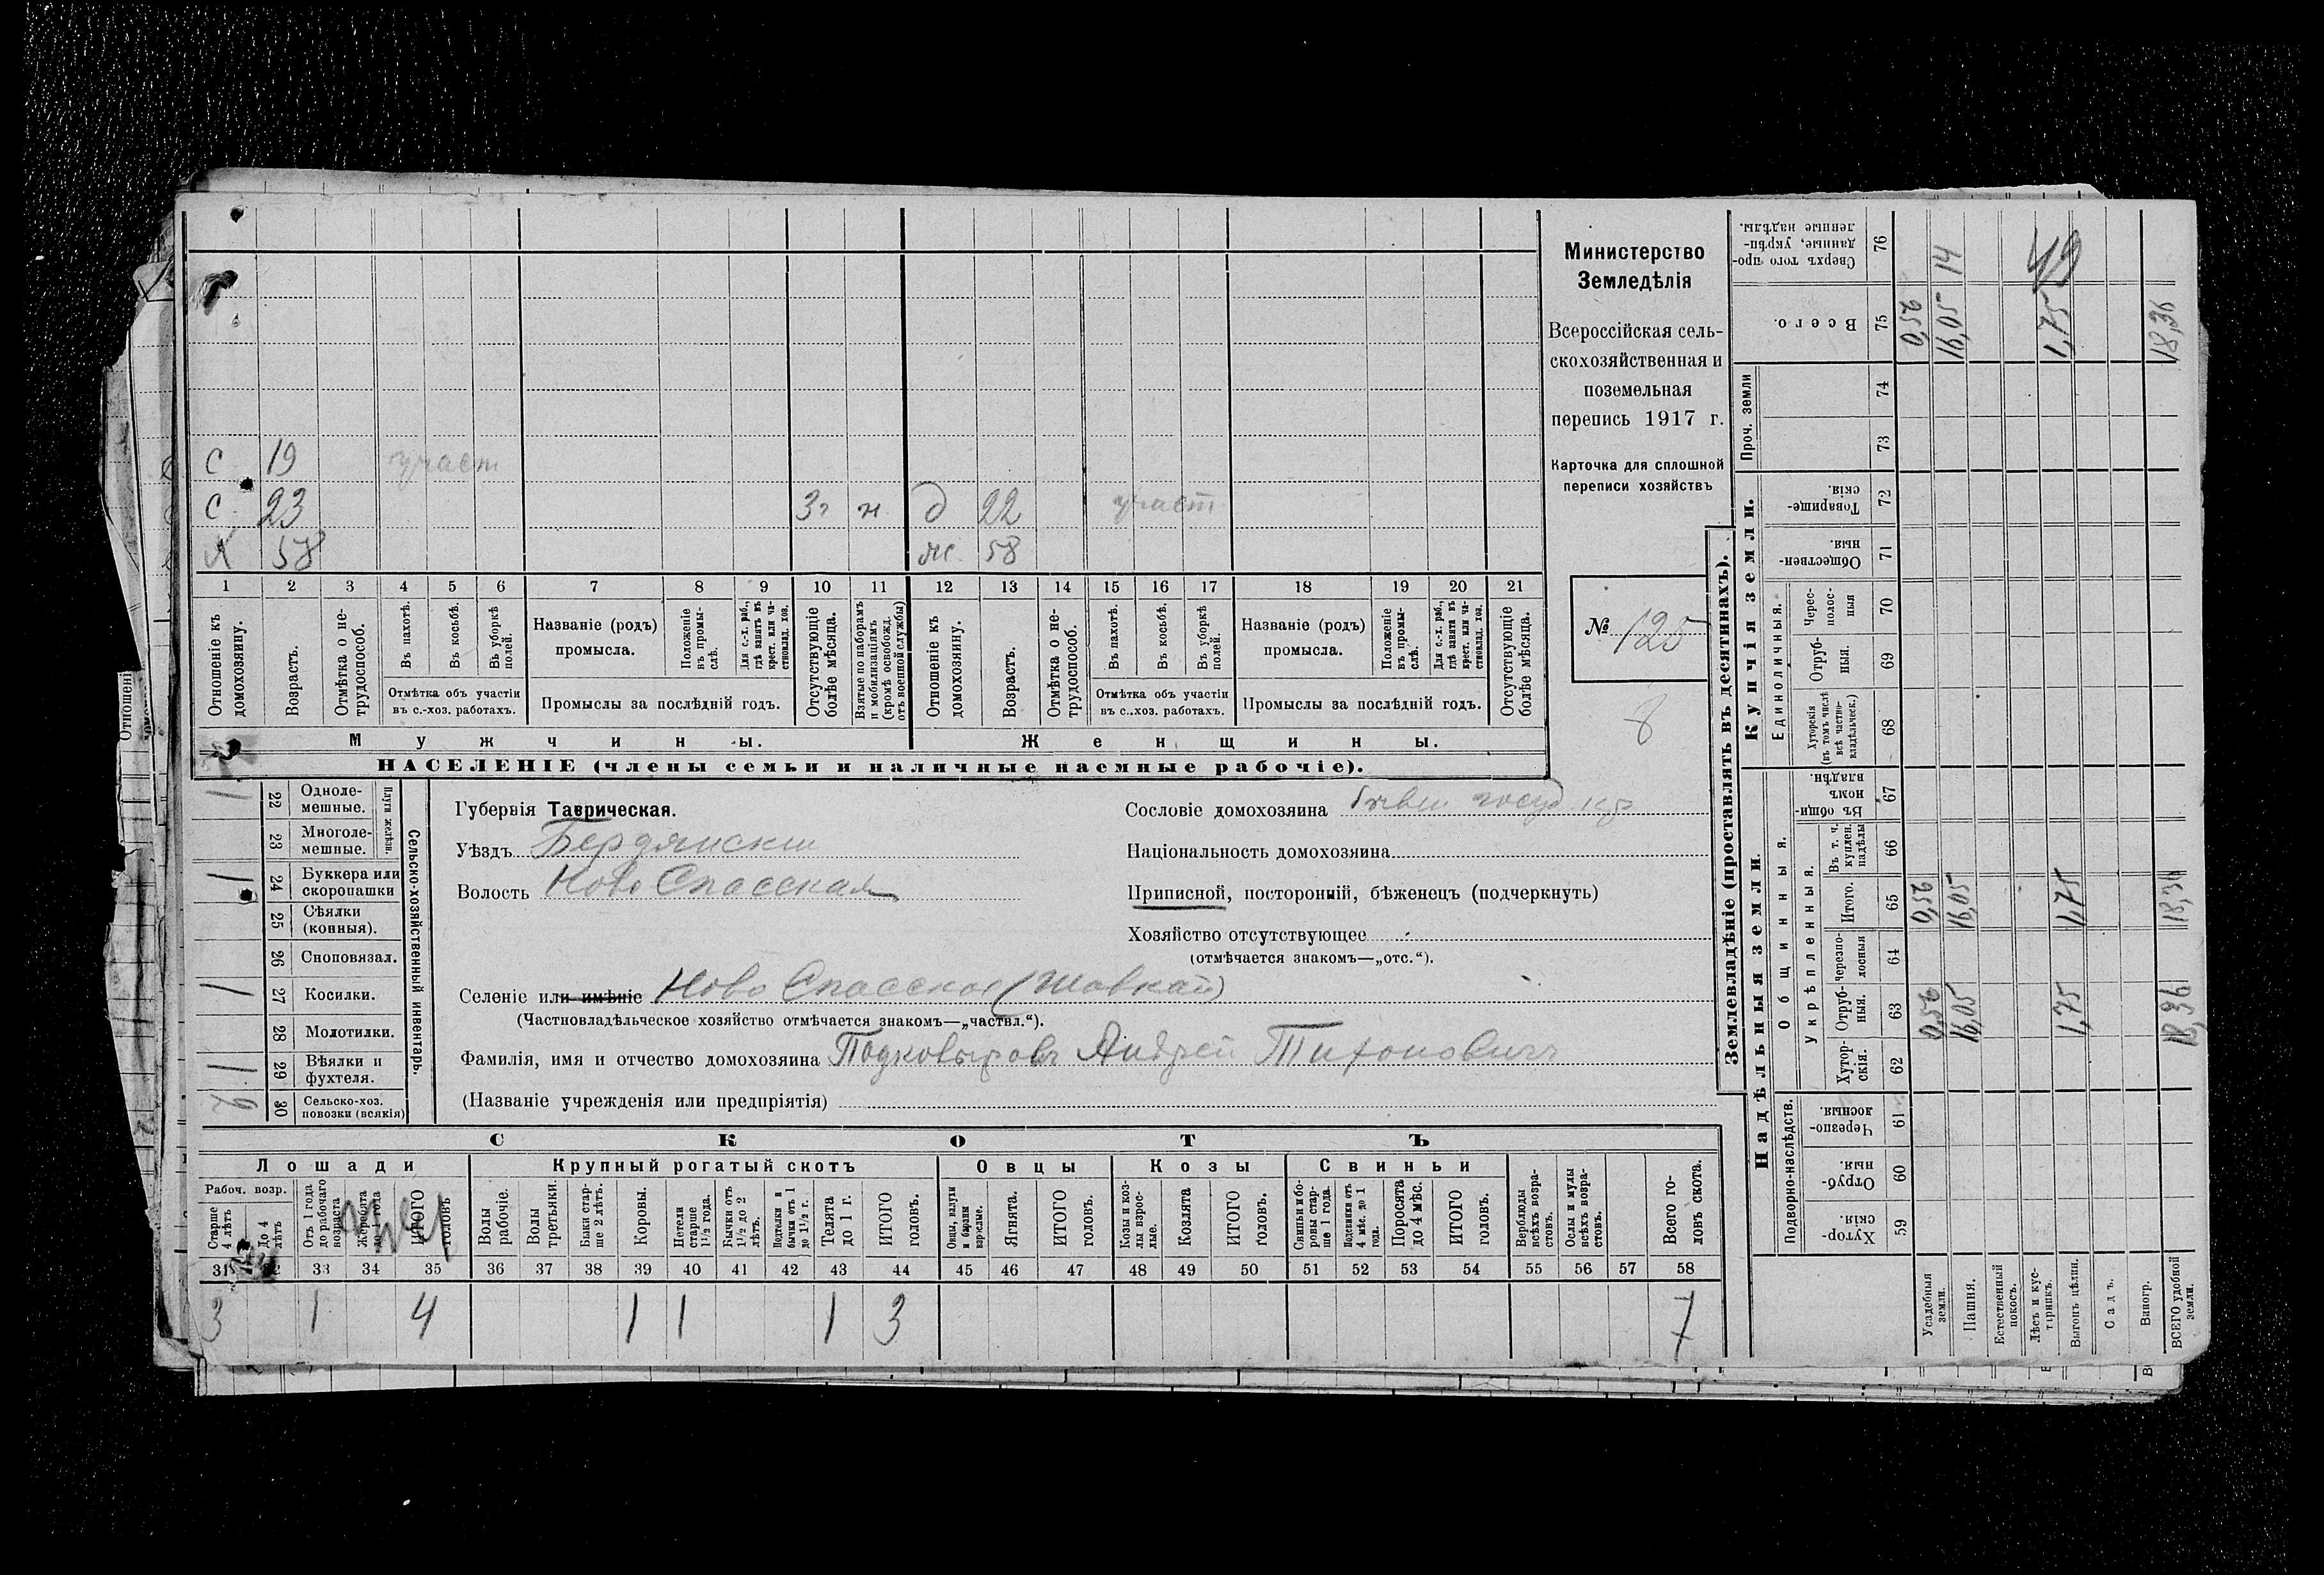 С 19 участ
С 23 3г н д 22 участ
Х 58 ж. 58
1 2 3 4 5 6 7 8 9 10 11 12 13 14 15 16 17 18 19 20 21
Отношеніе къ домохозяину.
Возрастъ.
Отмѣтка о не-
трудоспособ.
Въ пахотѣ.
Въ косьбѣ.
Въ уборкѣ
полей.
Отмѣтка объ участіи
въ с.-хоз. работахъ.
Названіе (родъ)
промысла.
Положеніе
въ промы-
слѣ.
Для с.-х. раб.,
гдѣ занятъ въ
крест. или ча-
стновлад. хоз.
Промыслы за послѣдній годъ.
Отсутствующіе
болѣе мѣсяца.
Взятые по наборамъ
и мобилизаціямъ
(кромѣ освобожд.
отъ военной службы)
Отношеніе къ
домохозяину.
Возрастъ.
Отмѣтка о не-
трудоспособ.
Въ пахотѣ.
Въ косьбѣ.
Въ уборкѣ
полей.
Отмѣтка объ участіи
въ с.-хоз. работахъ.
Названіе (родъ)
промысла.
Положеніе
въ промы-
слѣ.
Для с.-х. раб.,
гдѣ занята въ
крест. или ча-
стновлад. хоз.
Промыслы за послѣдній годъ.
Отсутствующіе
болѣе мѣсяца.
Мужчины. Женщины.
НАСЕЛЕНІЕ (члены семьи и наличные наемные рабочіе).
Министерство
Земледѣлія
Всероссійская сель-
скохозяйственная и
поземельная
перепись 1917 г.
Карточка для сплошной
переписи хозяйствъ
№ 125
8
1 22 Одноле-
мешные.
23 Многоле-
мешные.
Плуги желѣзн.
1 24 Буккера или
скоропашки
25 Сѣялки
(конныя).
26 Сноповязал.
1 27 Косилки.
28 Молотилки.
1 29 Вѣялки и
фухтеля.
2 30 Сельско-хоз.
повозки (всякія)
Сельско-хозяйственный инвентарь.
Губернія Таврическая.
Уѣздъ Бердянскій
Волость Ново Спасская
Сословіе домохозяина бывш госуд кр
Національность домохозяина
Приписной, посторонній, бѣженецъ (подчеркнуть)
Хозяйство отсутствующее
(отмѣчается знакомъ—„отс.“).
Селеніе или имѣніе Ново Спасское (Шавкай)
(Частновладѣльческое хозяйство отмѣчается знакомъ—„частвл.“).
Фамилія, имя и отчество домохозяина Подковыровъ Андрей Тихоновичъ
(Названіе учрежденія или предпріятія)
СКОТЪ
Лошади Крупный рогатый скотъ Овцы Козы Свиньи
Рабоч. возр.
Старше
4 лѣтъ
До 4
лѣтъ
Отъ 1 года
до рабочаго
возраста
Жеребята
до 1 года
ИТОГО
головъ
Волы
рабочіе.
Волы
третьяки.
Быки стар-
ше 2 лѣтъ.
Коровы.
Нетели
старше
1½ года.
Бычки отъ
1½ до 2
лѣтъ.
Подтелки и
бычки отъ 1
до 1½ г.
Телята
до 1 г.
ИТОГО
головъ.
Овцы, валухи
и бараны
взрослые.
Ягнята.
ИТОГО
головъ.
Козы и коз-
лы взрос-
лые.
Козлята
ИТОГО
головъ.
Свиньи и бо-
ровы стар-
ше 1 года.
Подсвинки отъ
4 мѣс. до 1
года.
Поросята
до 4 мѣс.
ИТОГО
головъ.
Верблюды
всѣхъ возра-
стовъ.
Ослы и мулы
всѣхъ возра-
стовъ.
Всего го-
ловъ скота.
31 32 33 34 35 36 37 38 39 40 41 42 43 44 45 46 47 48 49 50 51 52 53 54 55 56 57 58
3 1 4 1 1 1 3 7
Землевладѣніе (проставлять въ десятинахъ).
Надѣльныя земли. Купчія земли.
Подворно-наслѣдств.
Общинныя.
Укрѣпленныя.
Единоличныя.
Проч. земли
Хутор-
скія. 59
Отруб-
ныя. 60
Черезпо-
лосныя. 61
Хутор-
скія. 62
Отруб-
ныя. 63
Черезпо-
лосныя 64
Итого. 65
Въ т. ч.
куплен.
надѣлы 66
Въ общи-
номъ
владѣн. 67
Хуторскія
(въ томъ числѣ
всѣ частно-
владѣльческ.) 68
Отруб-
ныя. 69
Черес-
полос-
ныя 70
Обществен-
ныя. 71
Товарище-
скія. 72
73
74
Всего. 75
Сверхъ того про-
данные, укрѣп-
ленные надѣлы. 76
Усадебныя
земли. 0,56 0,56 0,56
Пашня. 16,05 16,05 16,05 14
Естественный
покосъ.
Лѣсъ и кус-
тарникъ.
Выгонъ цѣлин. 1,75 1,75 1,75 49
Садъ.
Виногр.
ВСЕГО удобной
земли. 18,36 18,36 18,36